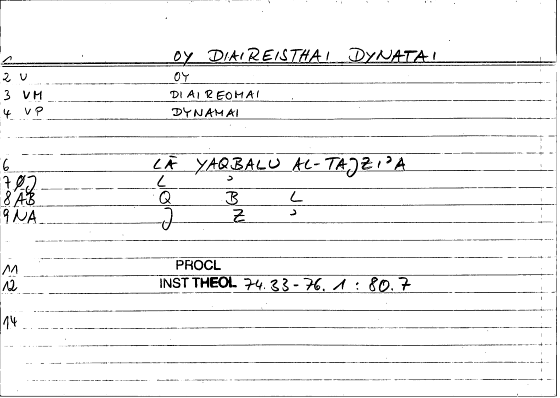 1 OY DIAIREISTHAI DYNATAI
2 V OY
3 VM DIAIREOMAI
4 VP DYNAMAI
6 LĀ YAQBALU AL-TAJZI'A
7 ØJ L '
8 AB Q B L
9 NA J Z '
11 PROCL
12 INST THEOL 74.33-76.1 : 80.7
14